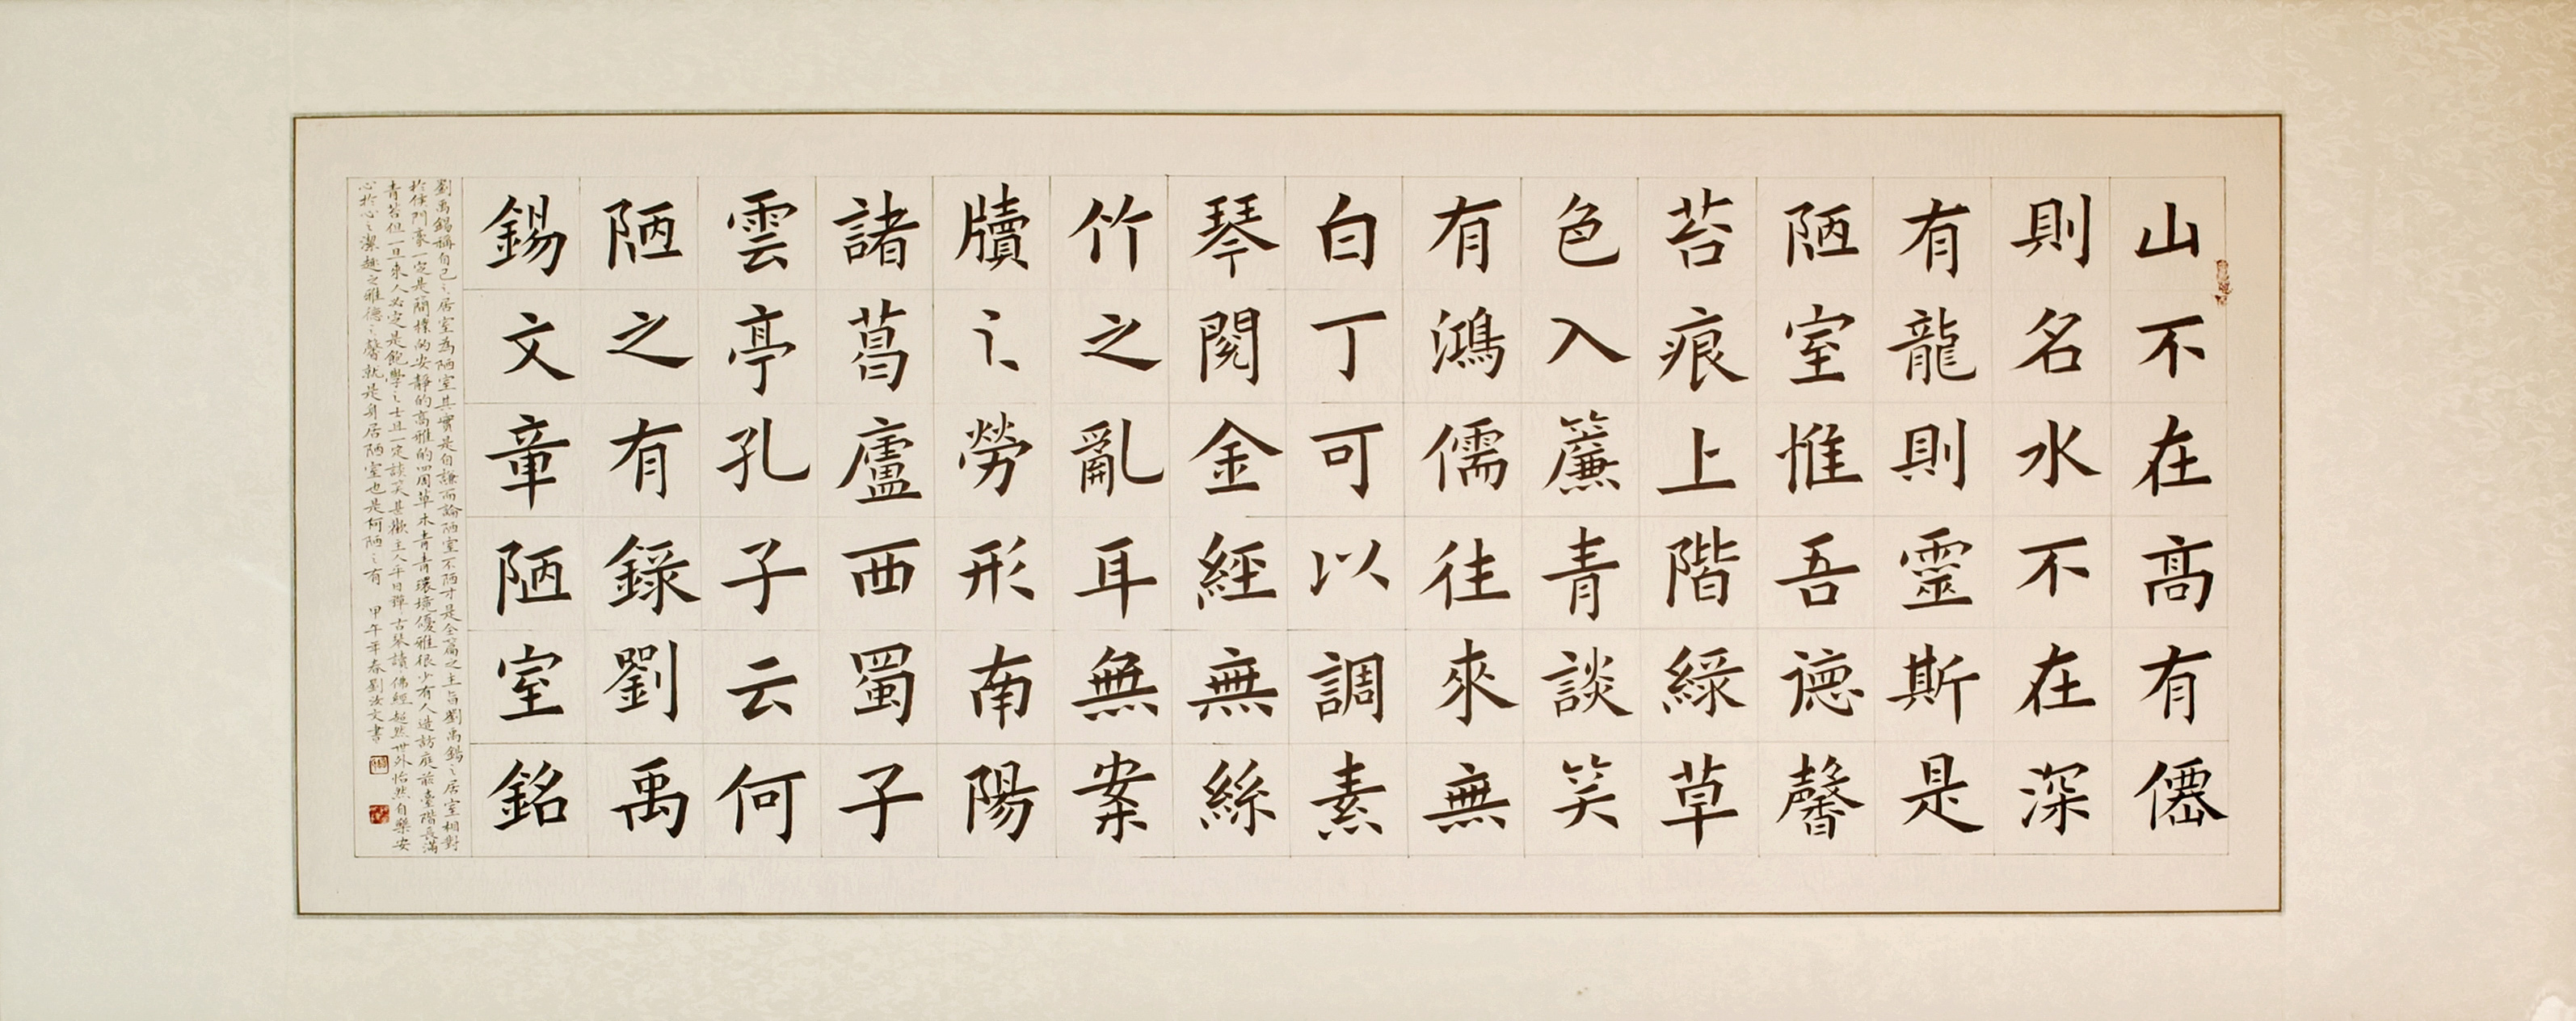 山不在高有僊
則名水不在深
有龍則靈斯是
陋室惟吾德馨
苔痕上階綠草
色入簾青談笑
有鴻儒往來無
白丁可以調素
琴閱金經無絲
竹之亂耳無案
牘⺀勞形南陽
諸葛廬西蜀子
雲亭孔子云何
陋之有錄劉禹
錫文章陋室銘
劉禹錫稱自己⺀居室為陋室其實是自謙而論陋室不陋才是全篇之主旨劉禹錫⺀居室相對
於侯門豪一定是簡樸的安靜的高雅的四周草木青青環境優雅很少有人造訪庭前臺階長滿
青苔但一旦來人必定是飽學⺀士且一定談笑甚歡主人平日彈古琴讀佛經超然世外怡然自樂安
心於心⺀潔趣之雅德⺀馨就是身居陋室也是何陋⺀有 甲午年春劉汝文書